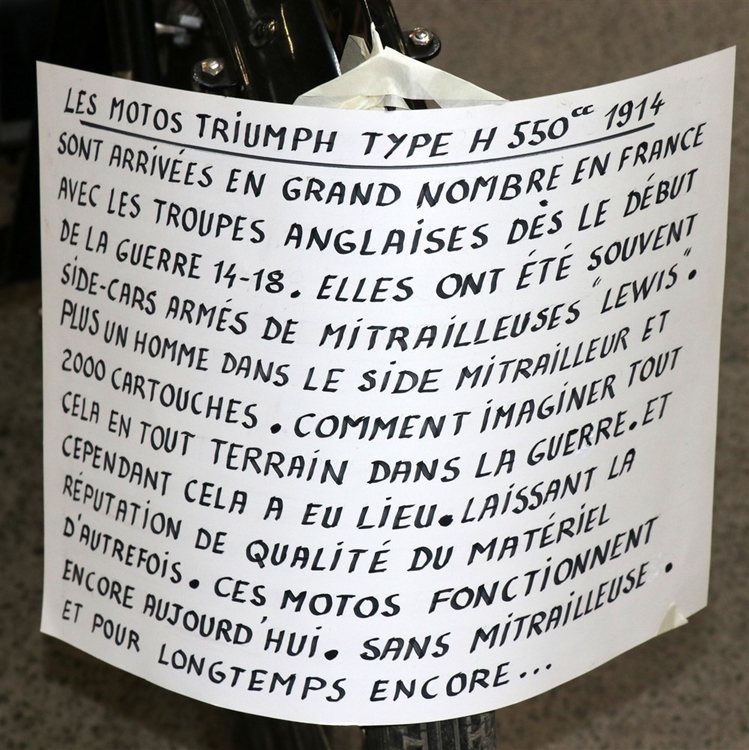 LES MOTOS TRIUMPH TYPE H 550cc 1914
SONT ARRIVÉES EN GRAND NOMBRE EN FRANCE
AVEC LES TROUPES ANGLAISES DÈS LE DÉBUT
DE LA GUERRE 14-18. ELLES ONT ÉTÉ SOUVENT
SIDE-CARS ARMÉS DE MITRAILLEUSES "LEWIS".
PLUS UN HOMME DANS LE SIDE MITRAILLEUR ET
2000 CARTOUCHES. COMMENT IMAGINER TOUT
CELA EN TOUT TERRAIN DANS LA GUERRE. ET
CEPENDANT CELA A EU LIEU. LAISSANT LA
RÉPUTATION DE QUALITÉ DU MATÉRIEL
D'AUTREFOIS. CES MOTOS FONCTIONNENT
ENCORE AUJOURD'HUI. SANS MITRAILLEUSE.
ET POUR LONGTEMPS ENCORE...